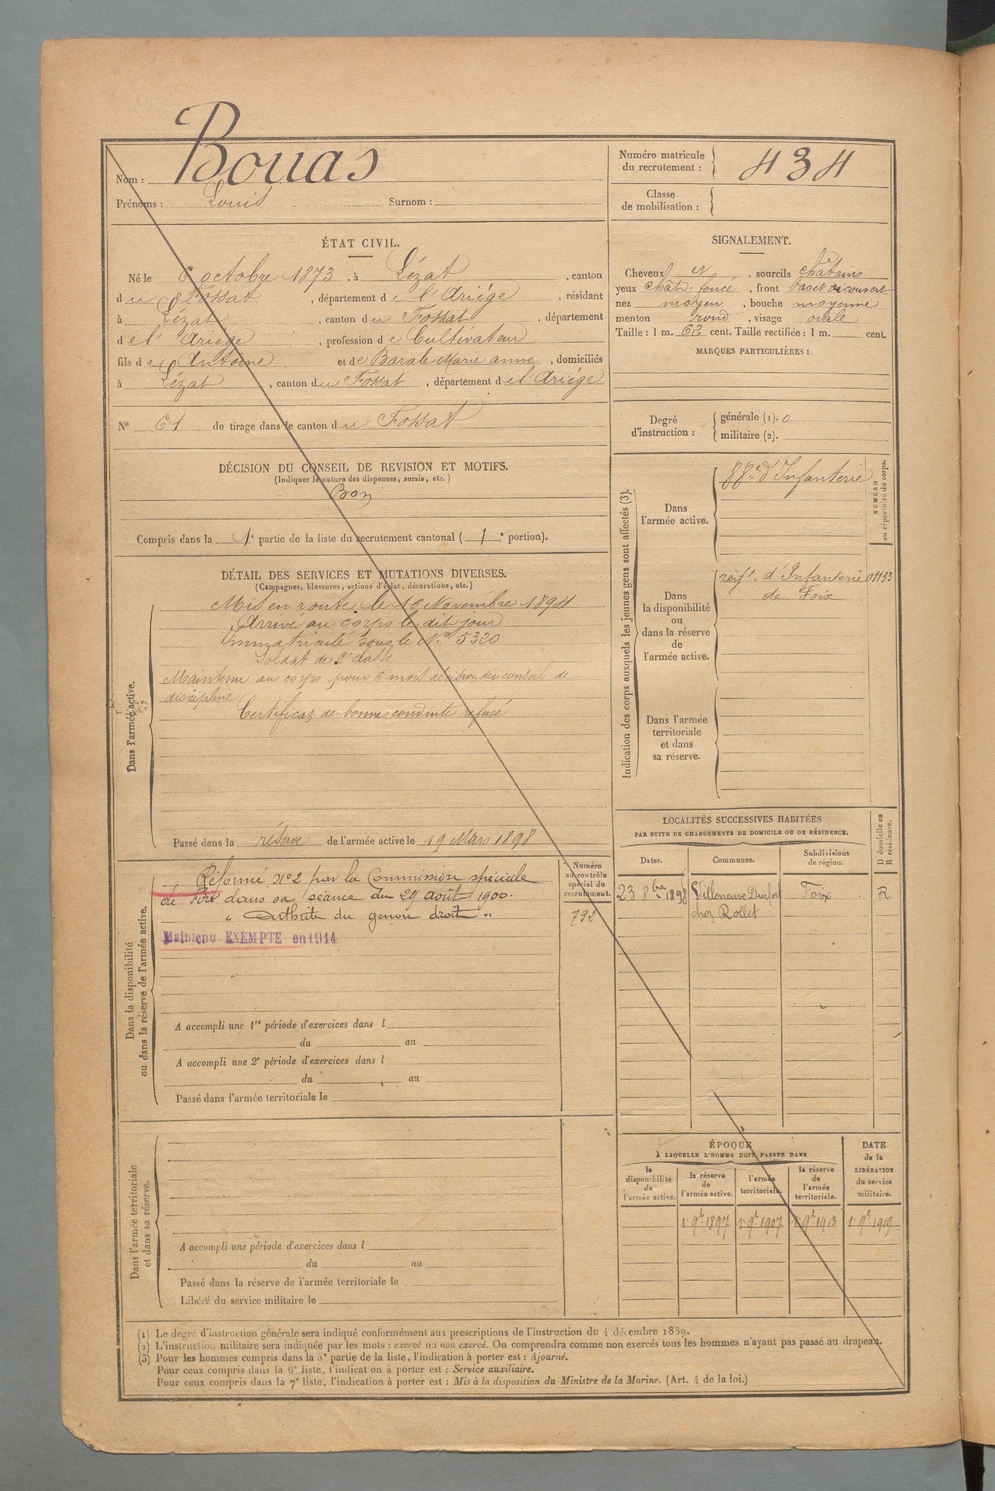 Nom : Bouas
Prénoms : Louis Surnom :
Numéro matricule du recrutement : 434
Classe de mobilisation :
ÉTAT CIVIL.
Né le 6 octobre 1873, à Lézat, canton
du Fossat, département de l'Ariége, résidant
à Lézat, canton du Fossat, département
de l'Ariége, profession de Cultivateur
fils de Antoine et de Barale Marie anne, domiciliés
à Lézat, canton du Fossat, département de l'Ariége
N° 61 de tirage dans le canton du Fossat
SIGNALEMENT.
Cheveux et, sourcils châtains
yeux chat. foncé, front bas et découvert
nez moyen, bouche moyenne
menton rond, visage ovale
Taille : 1 m. 62 cent. Taille rectifiée : 1 m. cent.
MARQUES PARTICULIÈRES :
Degré d'instruction : générale (1). 0
militaire (2).
DÉCISION DU CONSEIL DE REVISION ET MOTIFS.
(Indiquer la nature des dispenses, sursis, etc.)
Bon
Compris dans la 1e partie de la liste du recrutement cantonal ( 1e portion).
DÉTAIL DES SERVICES ET MUTATIONS DIVERSES.
(Campagnes, blessures, actions d'éclat, décorations, etc.)
Dans l'armée active.
Mis en route le 16 Novembre 1894
Arrivé au corps le dit jour
Immatriculé sous le N° 5320
Soldat de 2e classe
Maintenu au corps pour 6 mois décision du conseil de
discipline
Certificat de bonne conduite refusé
Passé dans la réserve de l'armée active le 19 Mars 1898
Indication des corps auxquels les jeunes gens sont affectés (3).
NUMÉRO au répertoire du corps.
Dans l'armée active.
88e d'Infanterie
Dans la disponibilité ou dans la réserve de l'armée active.
regt. d'Infanterie 01133
de Foix
Dans l'armée territoriale et dans sa réserve.
LOCALITÉS SUCCESSIVES HABITÉES
PAR SUITE DE CHANGEMENTS DE DOMICILE OU DE RÉSIDENCE.
D domicile ou R résidence.
Dates. Communes. Subdivisions de région.
23 8bre 1898 Villeneuve Durfort Foix R
chez Rollet
Dans la disponibilité ou dans la réserve de l'armée active.
Numéro au contrôle spécial du recrutement.
792
Réformé n°2 par la Commission spéciale
de Foix dans sa séance du 29 août 1900.
" arthrite du genou droit "
Maintenu EXEMPTE en 1914
A accompli une 1re période d'exercices dans l
du au
A accompli une 2e période d'exercices dans l
du au
Passé dans l'armée territoriale le
Dans l'armée territoriale et dans sa réserve.
A accompli une période d'exercices dans l
du au
Passé dans la réserve de l'armée territoriale le
Libéré du service militaire le
ÉPOQUE
À LAQUELLE L'HOMME DOIT PASSER DANS
DATE de la LIBÉRATION du service militaire.
la disponibilité de l'armée active. la réserve de l'armée active. l'armée territoriale. la réserve de l'armée territoriale.
1 9bre 1897 1 9bre 1907 1 9bre 1913 1 9bre 1919
(1) Le degré d'instruction générale sera indiqué conformément aux prescriptions de l'instruction du 4 décembre 1889.
(2) L'instruction militaire sera indiquée par les mots : exercé ou non exercé. On comprendra comme non exercés tous les hommes n'ayant pas passé au drapeau.
(3) Pour les hommes compris dans la 5e partie de la liste, l'indication à porter est : Ajourné.
Pour ceux compris dans la 6e liste, l'indication à porter est : Service auxiliaire.
Pour ceux compris dans la 7e liste, l'indication à porter est : Mis à la disposition du Ministre de la Marine. (Art. 4 de la loi.)